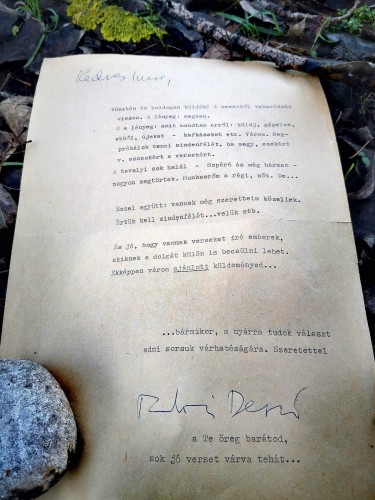 Kedves Imre,
Büszkén és boldogan küldöm! A
vissza. A lényeg: megvan.
S a lényeg: amit mondtam erről: küldj, gépelve,
ebből, újakat - kafkásakat etc. Várom. Meg-
próbálok tenni mindenfélét, ha megy, ezekért
v. ezekért a versekért.
A tavalyi sok halál - Szpéró és még hárman -
nagyon megtörtek. Munkaerőm a régi, sőt. De...
Ezzel együtt: vannak még szeretteim közeliek.
Értük kell mindenfélét...velük stb.
És jó, hogy vannak verseket író emberek,
akiknek a dolgát külön is becsülni lehet.
Ekképpen várom ajánlott küldeményed...
...bármikor, a nyárra tudok választ
adni sorsuk várhatóságára. Szeretettel
Tandori Dezső
a Te öreg barátod,
sok jó verset várva tehát...